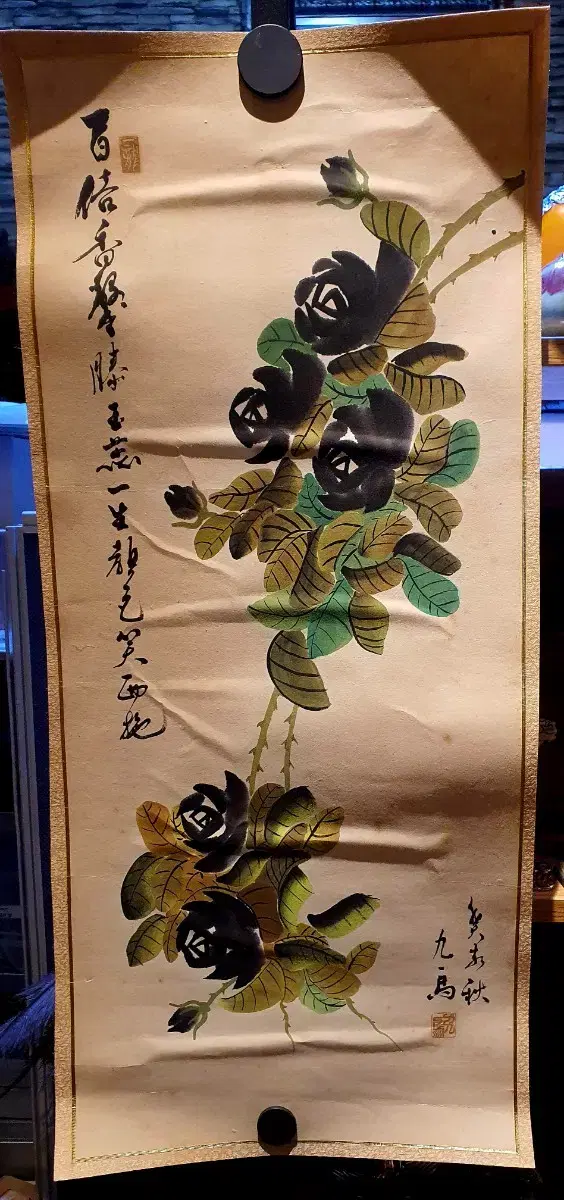 百倍香馨勝玉蕊一生顏色笑西施
癸未秋
九馬